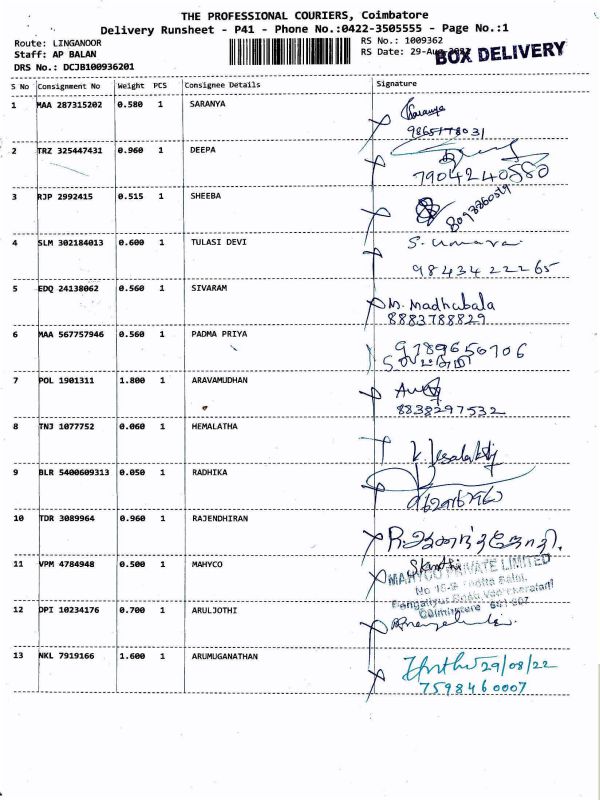 THE PROFESSIONAL COURIERS, Coimbatore
Delivery Runsheet - P41 - Phone No.:0422-3505555 - Page No.:1
Route: LINGANOOR RS No.: 1009362
Staff: AP BALAN RS Date: 29-Aug-2022 BOX DELIVERY
DRS No.: DCJB100936201
S No Consignment No Weight PCS Consignee Details Signature
1 MAA 287315202 0.580 1 SARANYA Saranya
9865178031
2 TRZ 325447431 0.960 1 DEEPA
7904240580
3 RJP 2992415 0.515 1 SHEEBA
4 SLM 302184013 0.600 1 TULASI DEVI S. Umara
98434 22265
5 EDQ 24138062 0.560 1 SIVARAM M. Madhubala
8883788829
6 MAA 567757946 0.560 1 PADMA PRIYA 9789650706
7 POL 1901311 1.800 1 ARAVAMUDHAN
8838297532
8 TNJ 1077752 0.060 1 HEMALATHA
9 BLR 5400609313 0.050 1 RADHIKA
10 TDR 3089964 0.960 1 RAJENDHIRAN
11 VPM 4784948 0.500 1 MAHYCO
MAHYCO PRIVATE LIMITED
Coimbatore
12 DPI 10234176 0.700 1 ARULJOTHI
13 NKL 7919166 1.600 1 ARUMUGANATHAN 29/08/22
7598460007